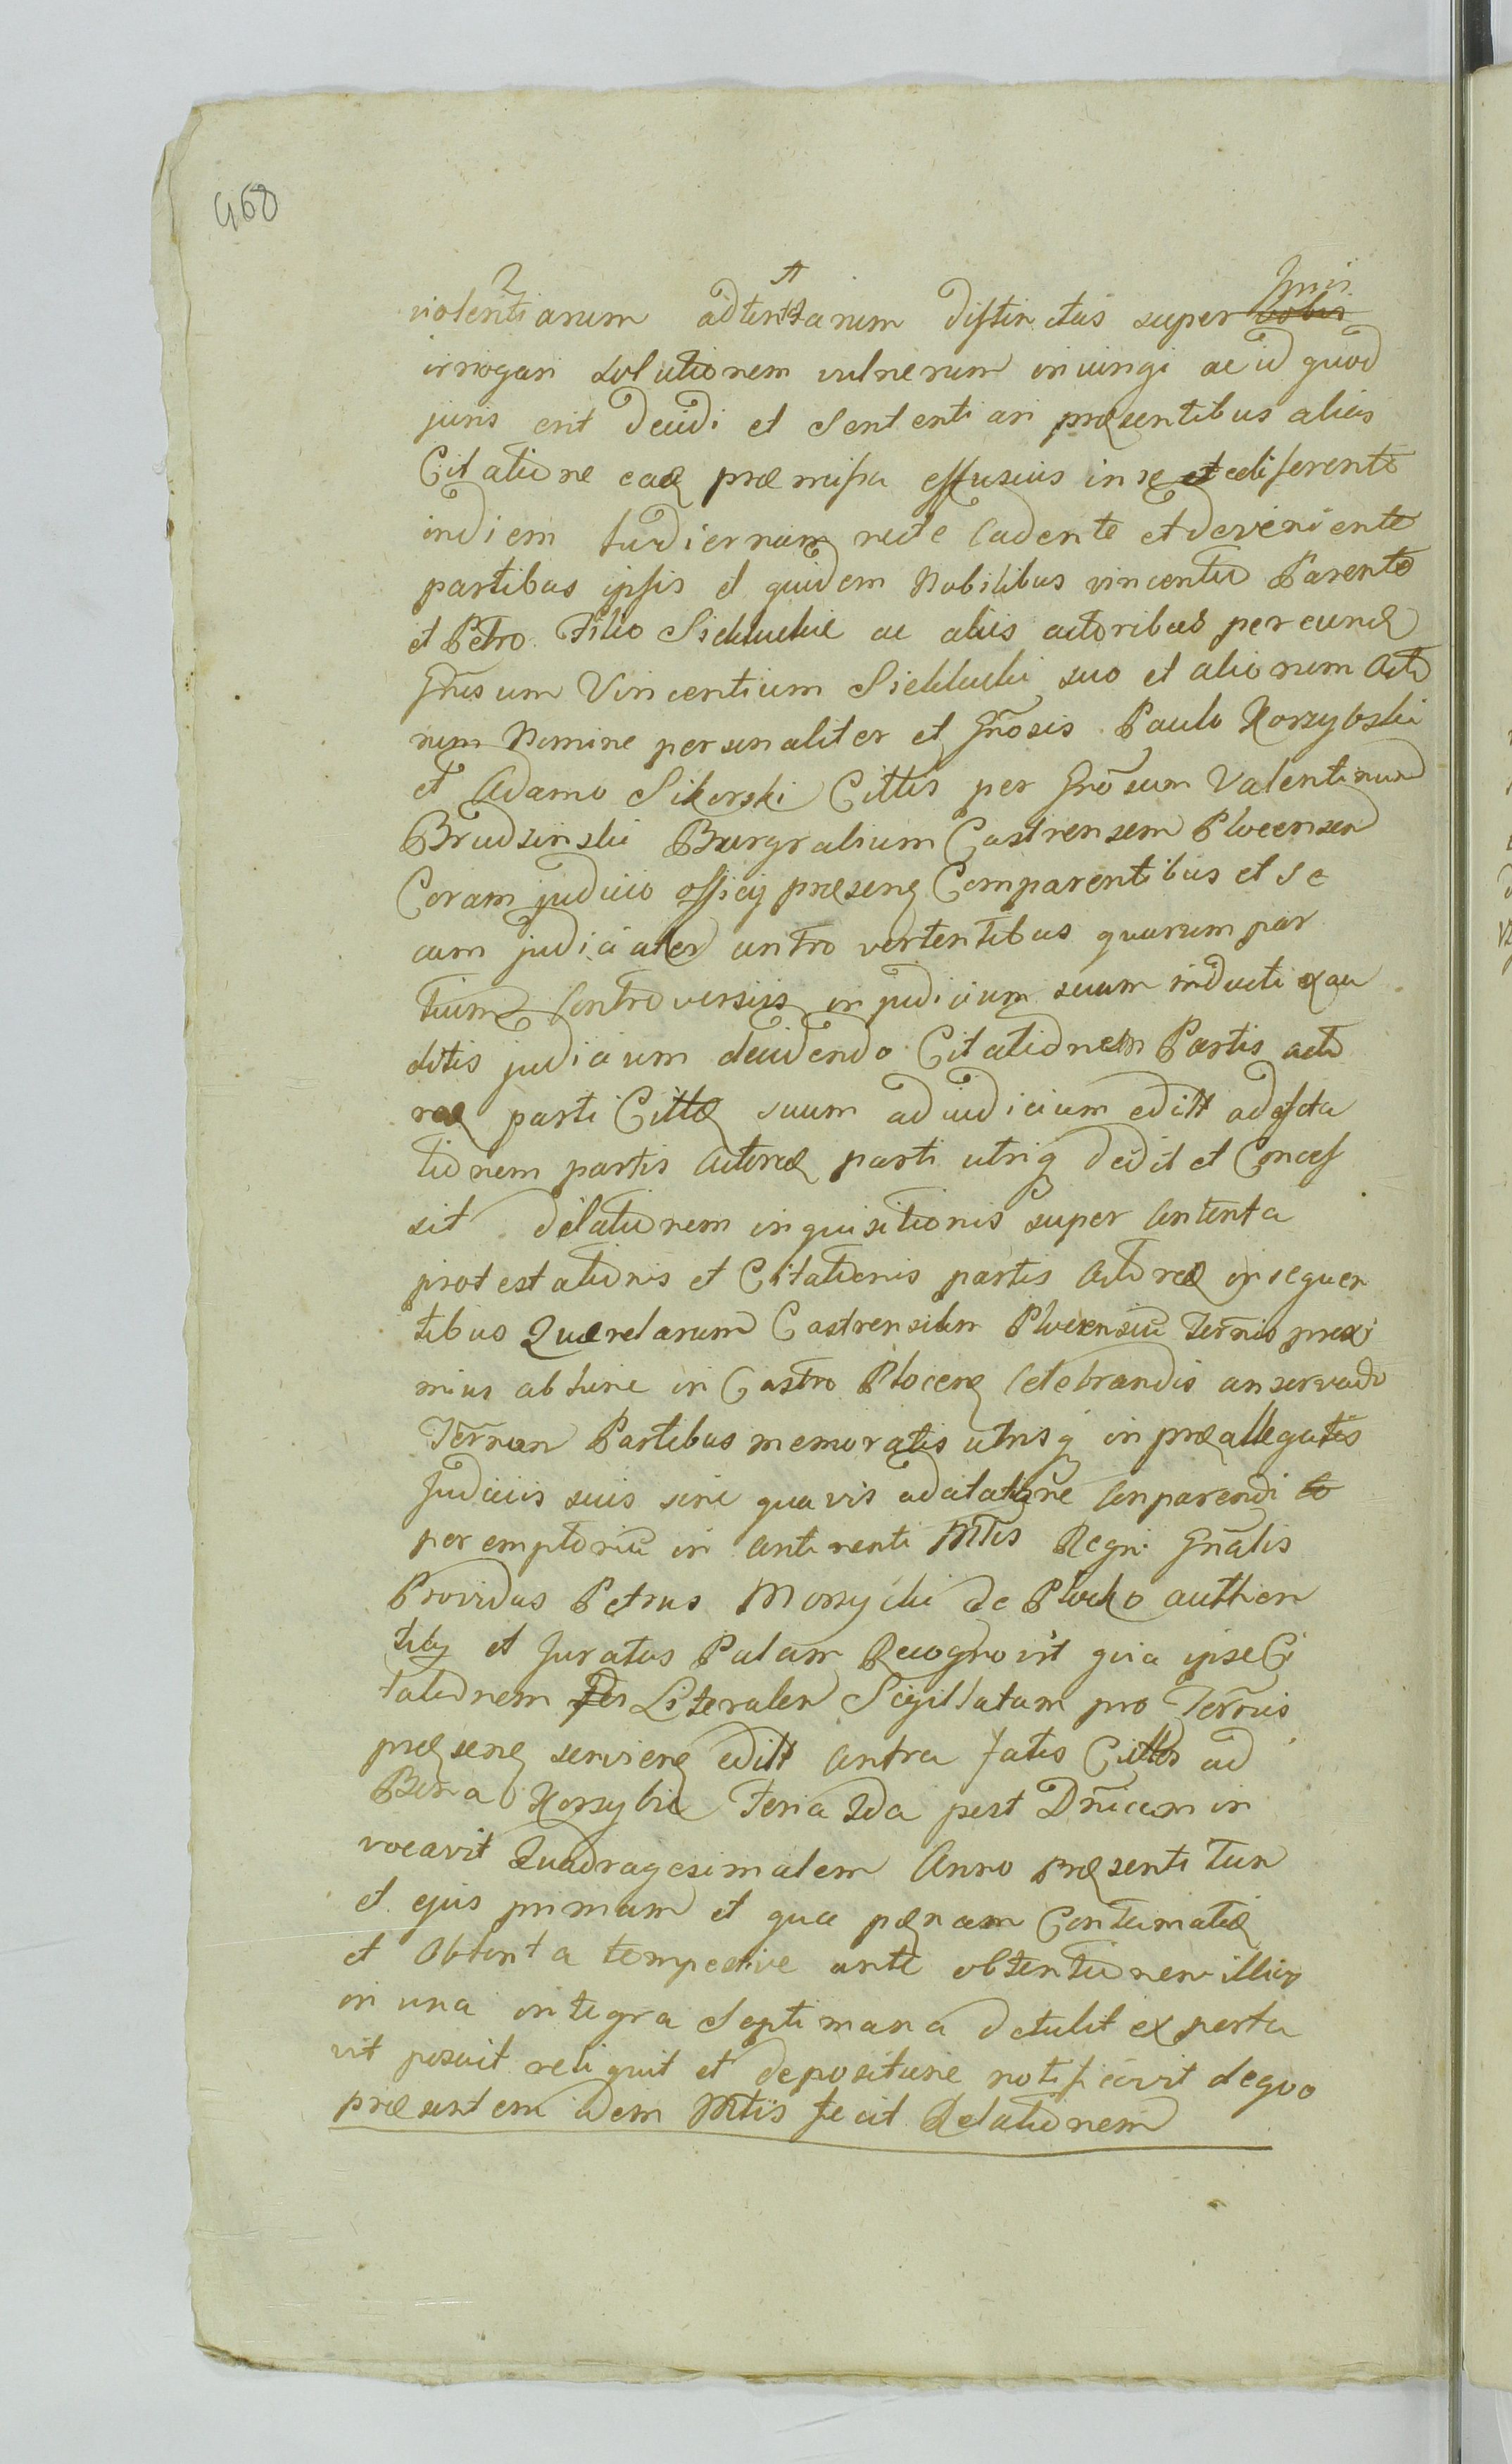 468
violentiarum adtentarum distinctas super vobis Imis
irrogari solutionem vulnerum iniungi ac id quod
juris erit decidi et sententiari præsentibus alias
Citatione eaq præmissa effusius in se et cdiferente
in diem hodiernam recte Cadente et deveniente
partibus ipsis et quidem Nobilibus vincentio Parente
et Petro Filio Siekluckie ac aliis actoribus per eund
Gnrsum Vincentium Sieklucki suo et aliorum Acto
rum Nomine personaliter et Gnosis Paulo Korzybski
et Adamo Sikorski Cittis per Gnosum Valentinum
Brudzinski Burgrabium Castrensem Plocensem
Coram judicio officij præsenq Comparentibus et se
cum judicialer contro vertentibus quarum par
tium Controversiis in judicium suum inducti exau
ditis judicium decidendo Citationem Partis acto
reæ parti Cittæ suum ad iudicium editt adfecta
tionem partis Actoreæ parti utriq dedit et Conces
sit dilationem inquisitionis super Contenta
protestationis et Citationis partis Actoreæ in sequen
tibus Querelarum Castrensium Plocensiu Ternis proxi
mius abhinc in Castro Plocenq Celebrandis conservando
Ternum Partibus memoratis utrisq in præallegatis
Judiciis suis sine quavis adcitatione Comparendi
peremptoriu in Continenti Mtis Regni Gnalis
Providus Petrus Morzycki de Plocko authen
ticq et Juratus Palam Recognovit quia ipse Ci
tationem Literalem Sigillatam pro Ternis
præsenq servienq editt Contra fatos Cittos ad
Bona Korzybie Feria 2da post Dnicam in
vocavit Quadragesimalem Anno Præsenti Tun
et ejus primum et qua pœnam Contumatiæ
et Obtenta tempestive ante obtentionem illius
in una integra Septimana detulit exporta
vit posuit reliquit et depositione notificavit de quo
præsentem idem Mtis fecit Relationem